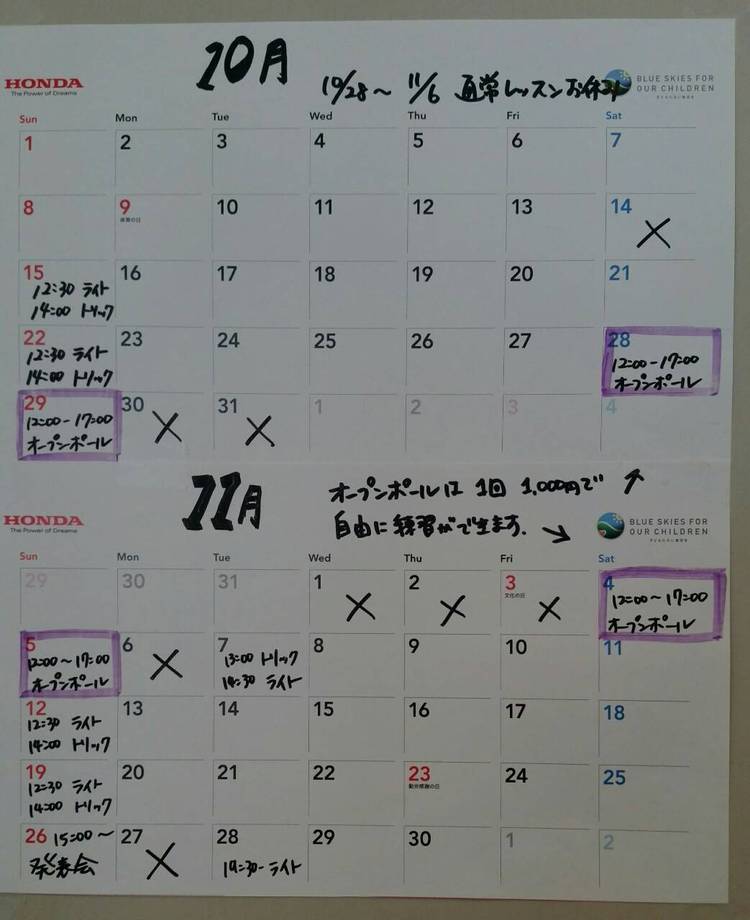 10月
10/28〜11/6 通常レッスンお休み
HONDA
The Power of Dreams
BLUE SKIES FOR
OUR CHILDREN
子どもたちに青空を
Sun Mon Tue Wed Thu Fri Sat
1 2 3 4 5 6 7
8 9 10 11 12 13 14 ×
体育の日
15 16 17 18 19 20 21
12:30 ライト
14:00 トリック
22 23 24 25 26 27 28
12:30 ライト 12:00-17:00
14:00 トリック オープンポール
29 30 × 31 × 1 2 3 4
12:00-17:00
オープンポール
11月
オープンポールは 1回 1,000円で ↗
自由に練習ができます. ↘
HONDA
The Power of Dreams
BLUE SKIES FOR
OUR CHILDREN
子どもたちに青空を
Sun Mon Tue Wed Thu Fri Sat
29 30 31 1 × 2 × 3 × 4
文化の日
12:00〜17:00
オープンポール
5 6 × 7 8 9 10 11
12:00〜17:00 13:00 トリック
オープンポール 14:30 ライト
12 13 14 15 16 17 18
12:30 ライト
14:00 トリック
19 20 21 22 23 24 25
勤労感謝の日
12:30 ライト
14:00 トリック
26 15:00〜 27 × 28 29 30 1 2
発表会 14:30- ライト